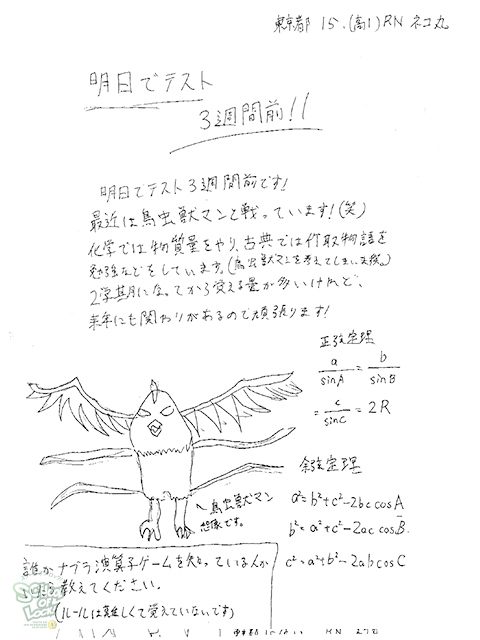 東京都 15.(高1) RN ネコ丸
明日でテスト
3週間前!!
明日でテスト3週間前です!
最近は鳥虫獣マンと戦っています!(笑)
化学では物質量をやり、古典では竹取物語を
勉強などをしています。(鳥虫獣マンを考えてしまいま後。)
2学期になってから覚える量が多いけれど、
来年にも関わりがあるので頑張ります!
正弦定理
a/sinA = b/sinB
= c/sinC = 2R
余弦定理
a²=b²+c²-2bc cosA
b²=a²+c²-2ac cosB.
c²=a²+b²-2ab cosC
鳥虫獣マン
想像です。
誰かナブラ演算子ゲームを知っている人が
教えてください.
(ルールは難しくて覚えていないです)